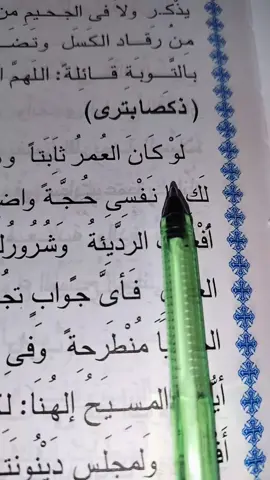 يذكر ولا فى الجحيم من
من رقاد الكسل وتضـ
بالتوبة قائلة: اللهم ا
(ذكصابترى)
لَوْ كَانَ العُمرُ ثَابِتاً و
لَكِ يا نَفْسِى حُجَّةً واضـ
الرديَّئِةُ وَشُرُورُكِ
فَأىَّ جَوابٍ تجُـ
مُنْطَرحةً وَفىِ
المسِيَحُ إلهُنَا: لتـ
وَلمجلَسِ دَيْنُونتـ